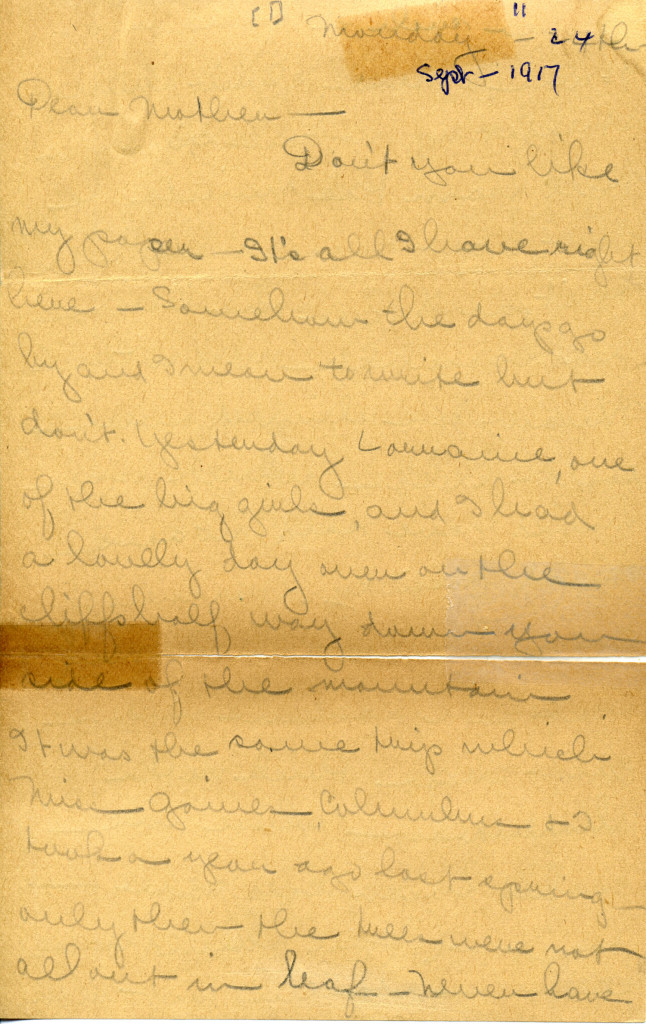 [1]
Monday — 24th
" 24
Sept — 1917
Dear Mother —
Don't you like
my paper — It's all I have right
here — Somehow the days go
by and I mean to write but
don't. Yesterday Lorraine, one
of the big girls, and I had
a lovely day over on the
cliffs half way down your
side of the mountain
It was the same trip which
Miss Gaines, Columbus & I
took a year ago last spring —
only then the trees were not
all out in leaf — Never have